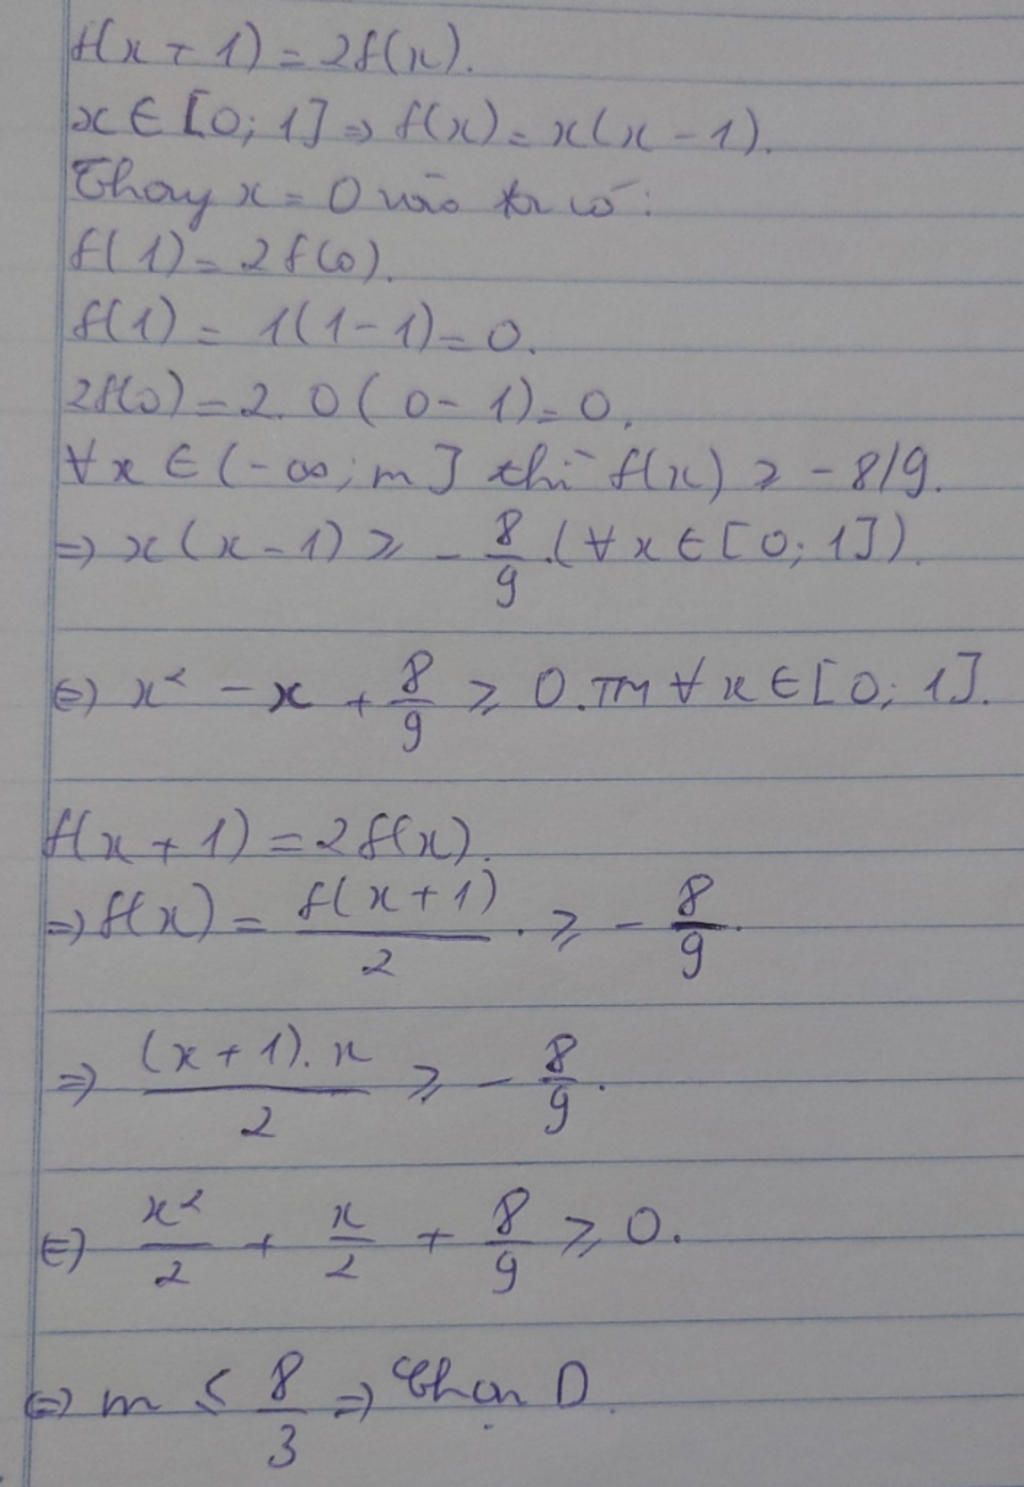 f(x + 1) = 2f(x).
x ∈ [0; 1] ⇒ f(x) = x(x - 1).
Thay x = 0 vào ta có:
f(1) = 2f(0).
f(1) = 1(1 - 1) = 0.
2f(0) = 2. 0 ( 0 - 1) = 0.
∀x ∈ (-∞; m] thì f(x) ≥ - 8/9.
⇒ x(x - 1) ≥ - 8/9 .(∀x ∈ [0; 1]).
⇔ x² - x + 8/9 ≥ 0. TM ∀x ∈ [0; 1].
f(x + 1) = 2f(x).
⇒ f(x) = f(x + 1)/2 . ≥ - 8/9.
⇒ (x + 1). x/2 ≥ - 8/9.
⇔ x²/2 + x/2 + 8/9 ≥ 0.
⇒ m ≤ 8/3 ⇒ Chọn D.